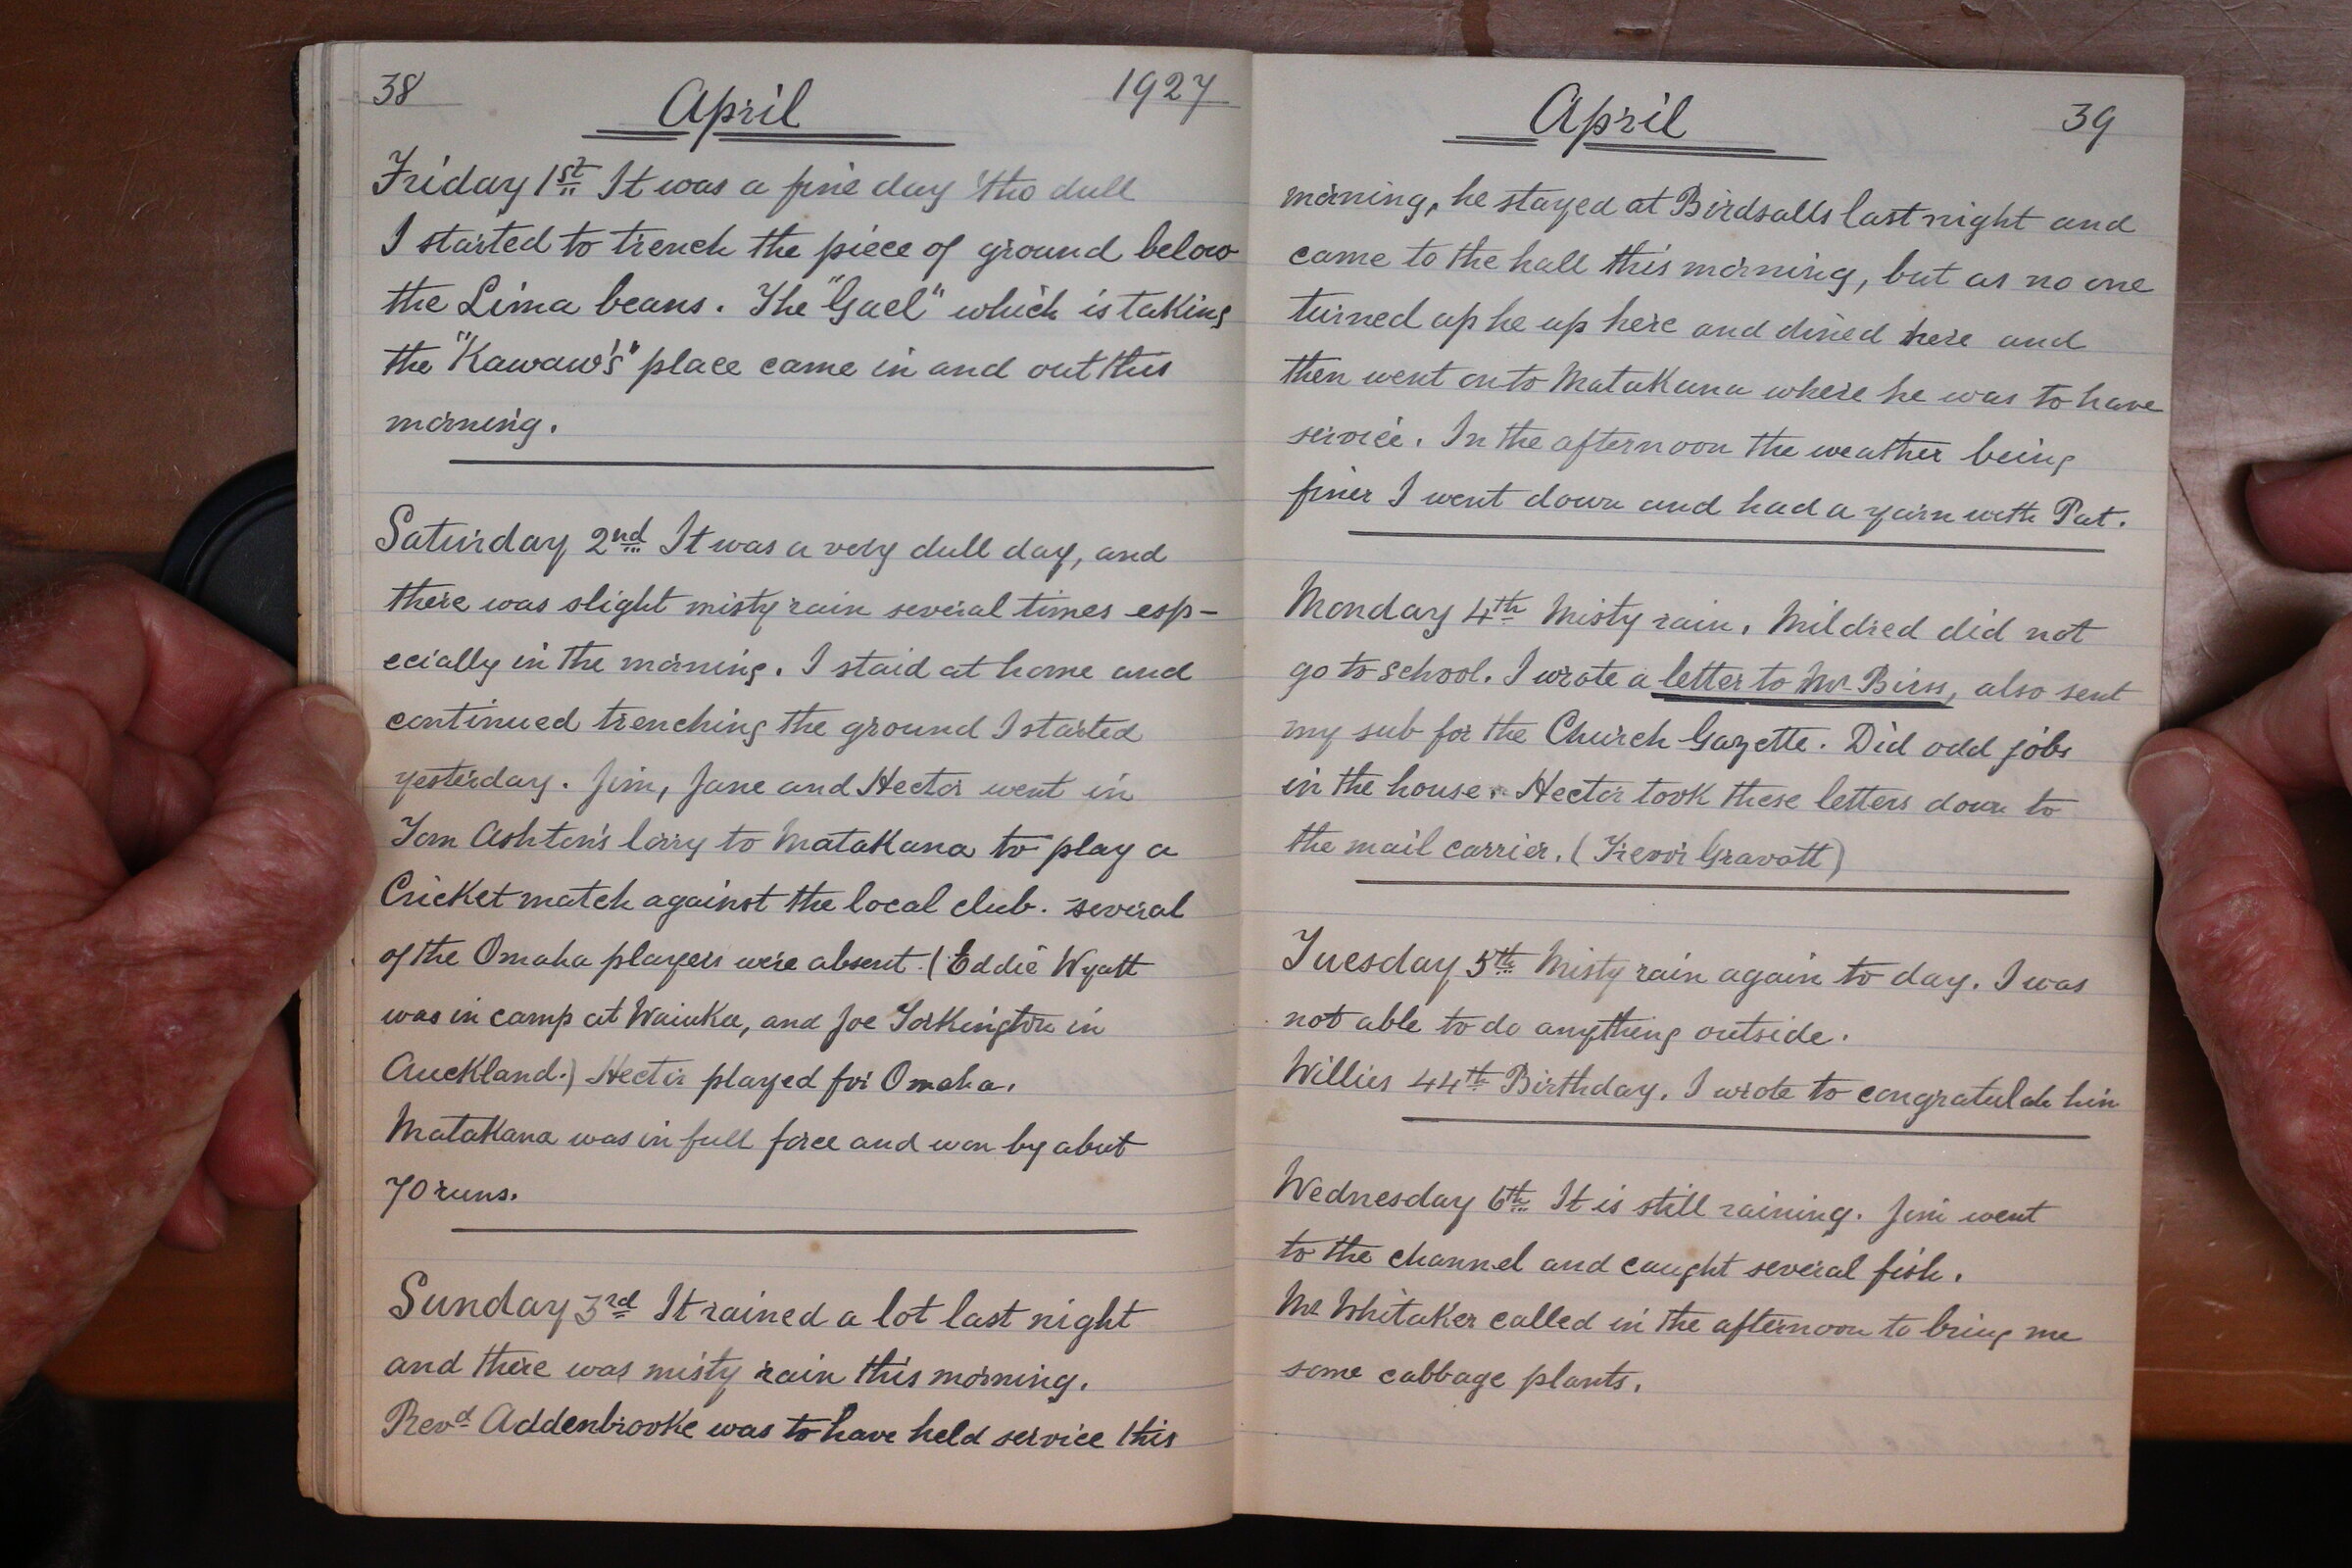 38 April 1927
Friday 1st It was a fine day 'tho dull
I started to trench the piece of ground below
the Lima beans. The "Gael" which is taking
the "Kawau's" place came in and out this
morning.
Saturday 2nd It was a very dull day, and
there was slight misty rain several times esp-
ecially in the morning. I staid at home and
continued trenching the ground I started
yesterday. Jim, Jane and Hector went in
Tom Ashton's lorry to Matakana to play a
Cricket match against the local club. several
of the Omaha players were absent. (Eddie Wyatt
was in camp at Waiuku, and Joe Torkington in
Auckland.) Hector played for Omaha.
Matakana was in full force and won by abut
70 runs.
Sunday 3rd It rained a lot last night
and there was misty rain this morning.
Revd Addenbrooke was to have held service this
April 39
morning, he stayed at Birdsalls last night and
came to the hall this morning, but as no one
turned up he up here and dined here and
then went onto Matakana where he was to have
service. In the afternoon the weather being
finer I went down and had a yarn with Pat.
Monday 4th Misty rain. Mildred did not
go to school. I wrote a letter to Mr. also sent
my sub for the Church Gazette. Did odd jobs
in the house. Hector took these letters down to
the mail carrier. (Trevor Gravatt)
Tuesday 5th Misty rain again to day. I was
not able to do anything outside.
Willies 44th Birthday. I wrote to congratulate him
Wednesday 6th It is still raining. Jim went
to the channel and caught several fish.
Mr Whitaker called in the afternoon to bring me
some cabbage plants.